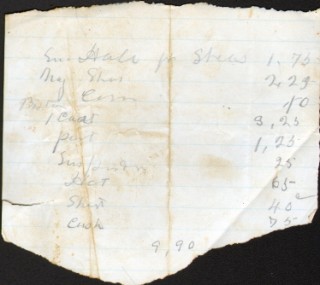 Hale for Shoe 1.70
My Shoe 2.25
Corn 10
1 Coat 3,25
pant 1,25
Suspenders 25
Hat 65
Shirt 40
Cash 75
9,90